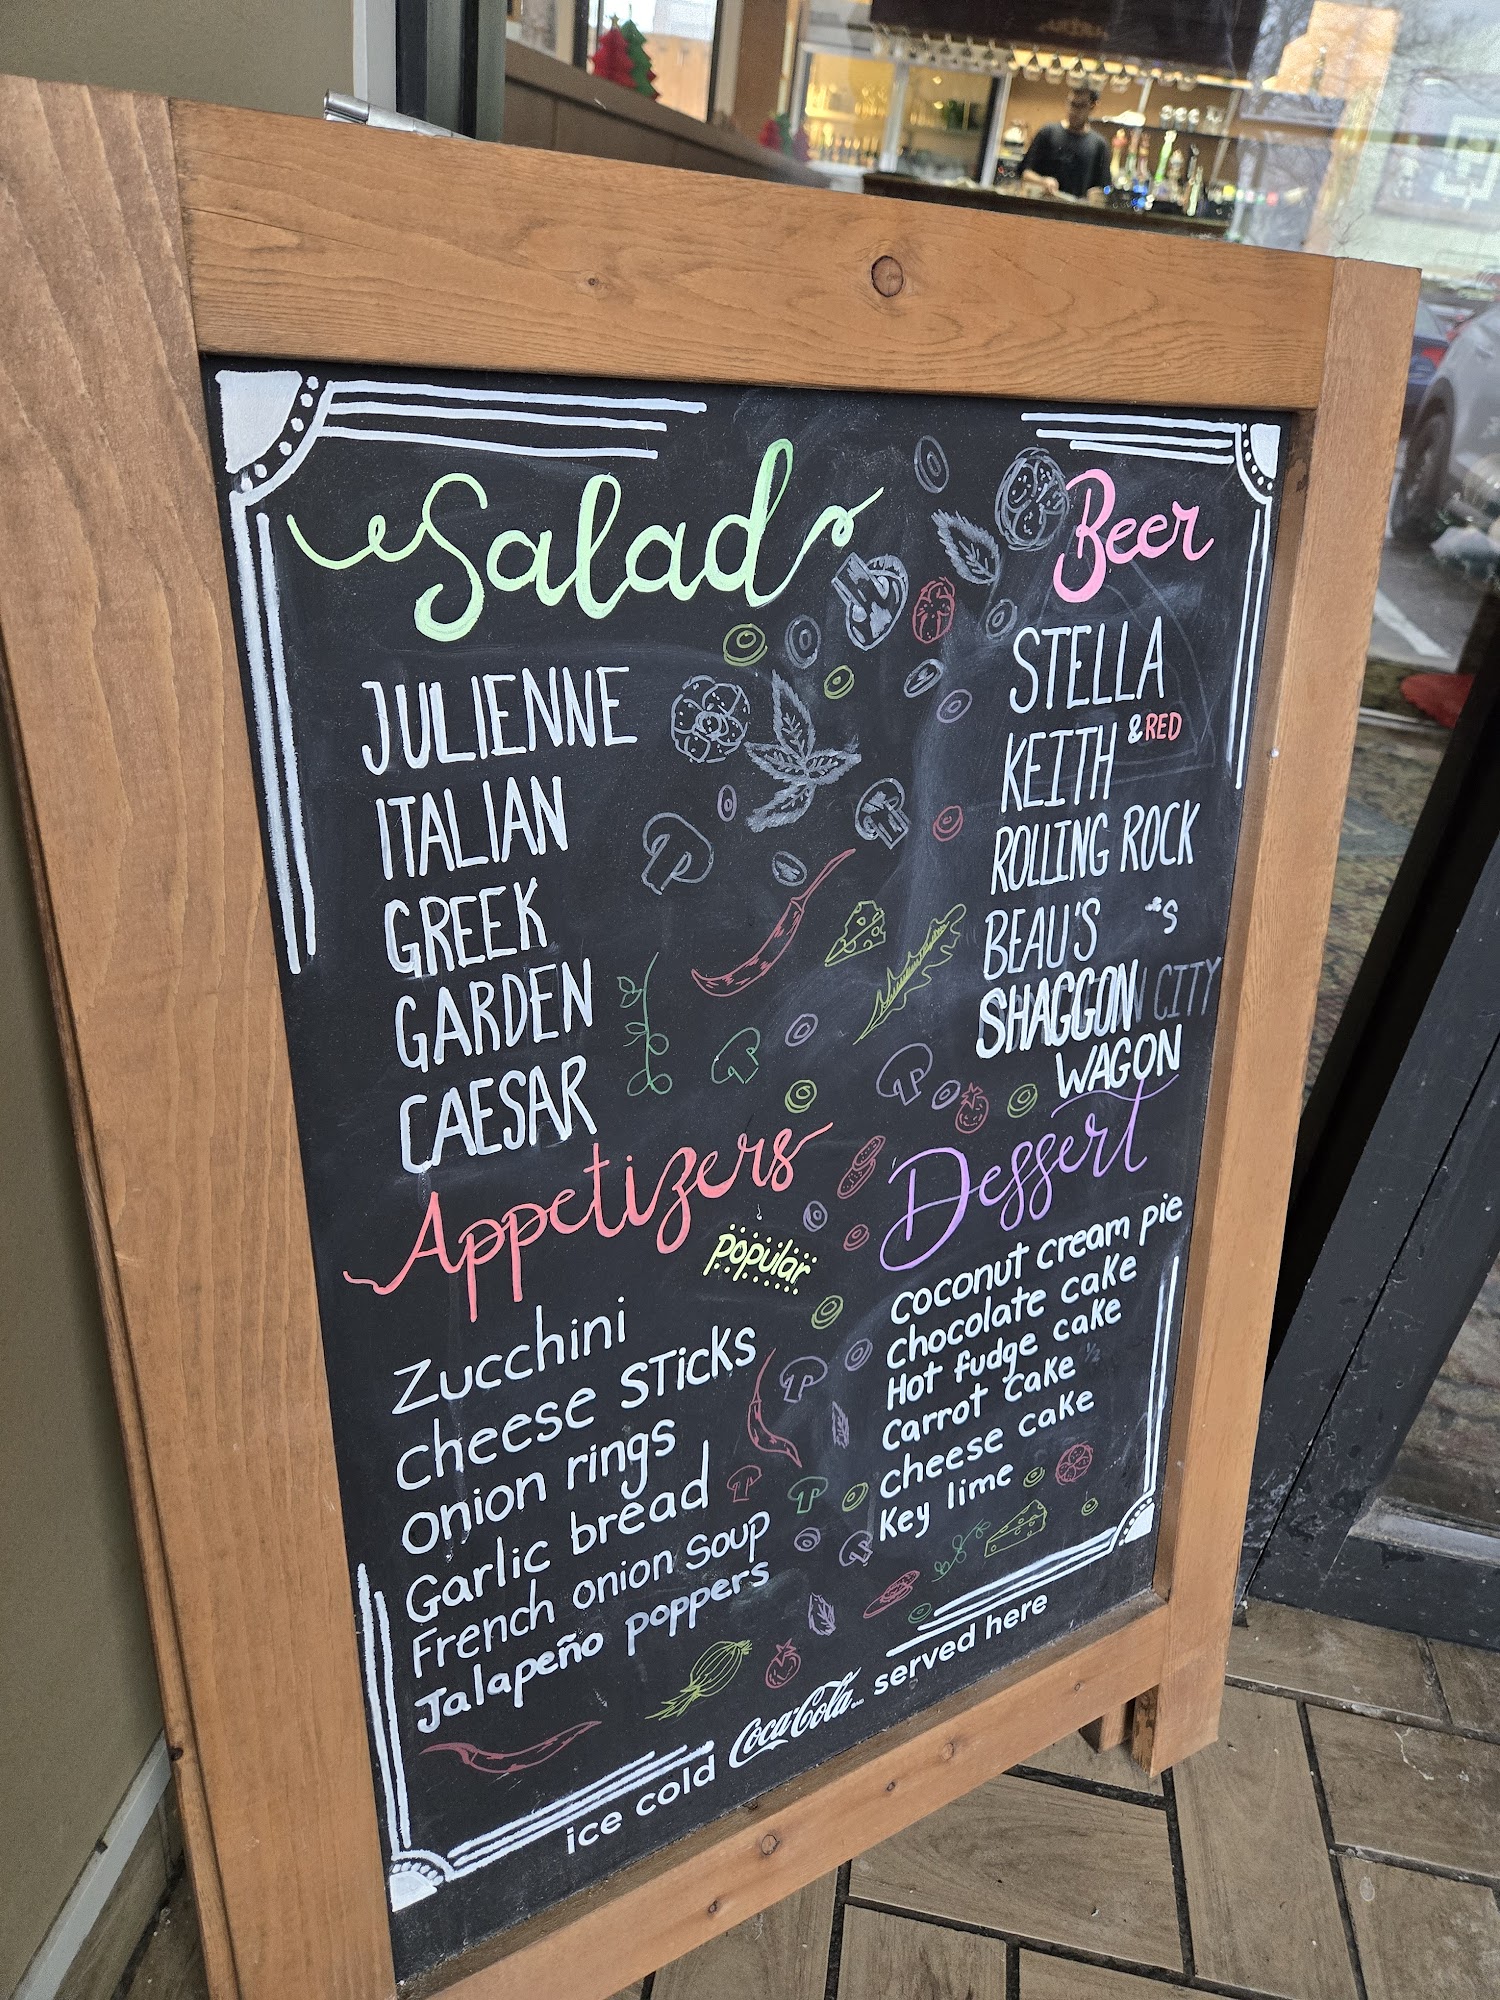 Salad
JULIENNE
ITALIAN
GREEK
GARDEN
CAESAR
Beer
STELLA
KEITH &RED
ROLLING ROCK
BEAU'S
SHAGGON CITY
WAGON
Appetizers
popular
Zucchini
cheese sticks
onion rings
Garlic bread
French onion soup
Jalapeño poppers
Dessert
coconut cream pie
chocolate cake
Hot fudge cake
Carrot cake ½
cheese cake
Key lime
ice cold Coca-Cola served here